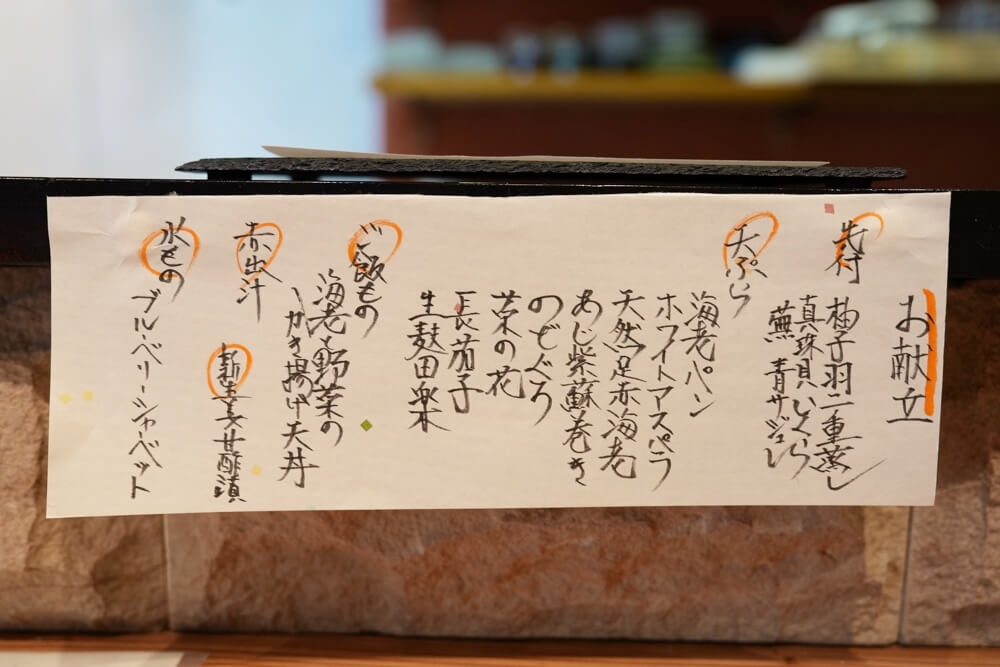 お献立
先付
柚子羽二重蒸し
真珠貝いくら
蕪 青サジュレ
天ぷら
海老パン
ホワイトアスパラ
天然足赤海老
あじ紫蘇巻き
のどぐろ
菜の花
長茄子
生麩田楽
ご飯もの
海老と野菜の
かき揚げ天丼
赤出汁
新生姜甘酢漬
水もの
ブルーベリーシャーベット